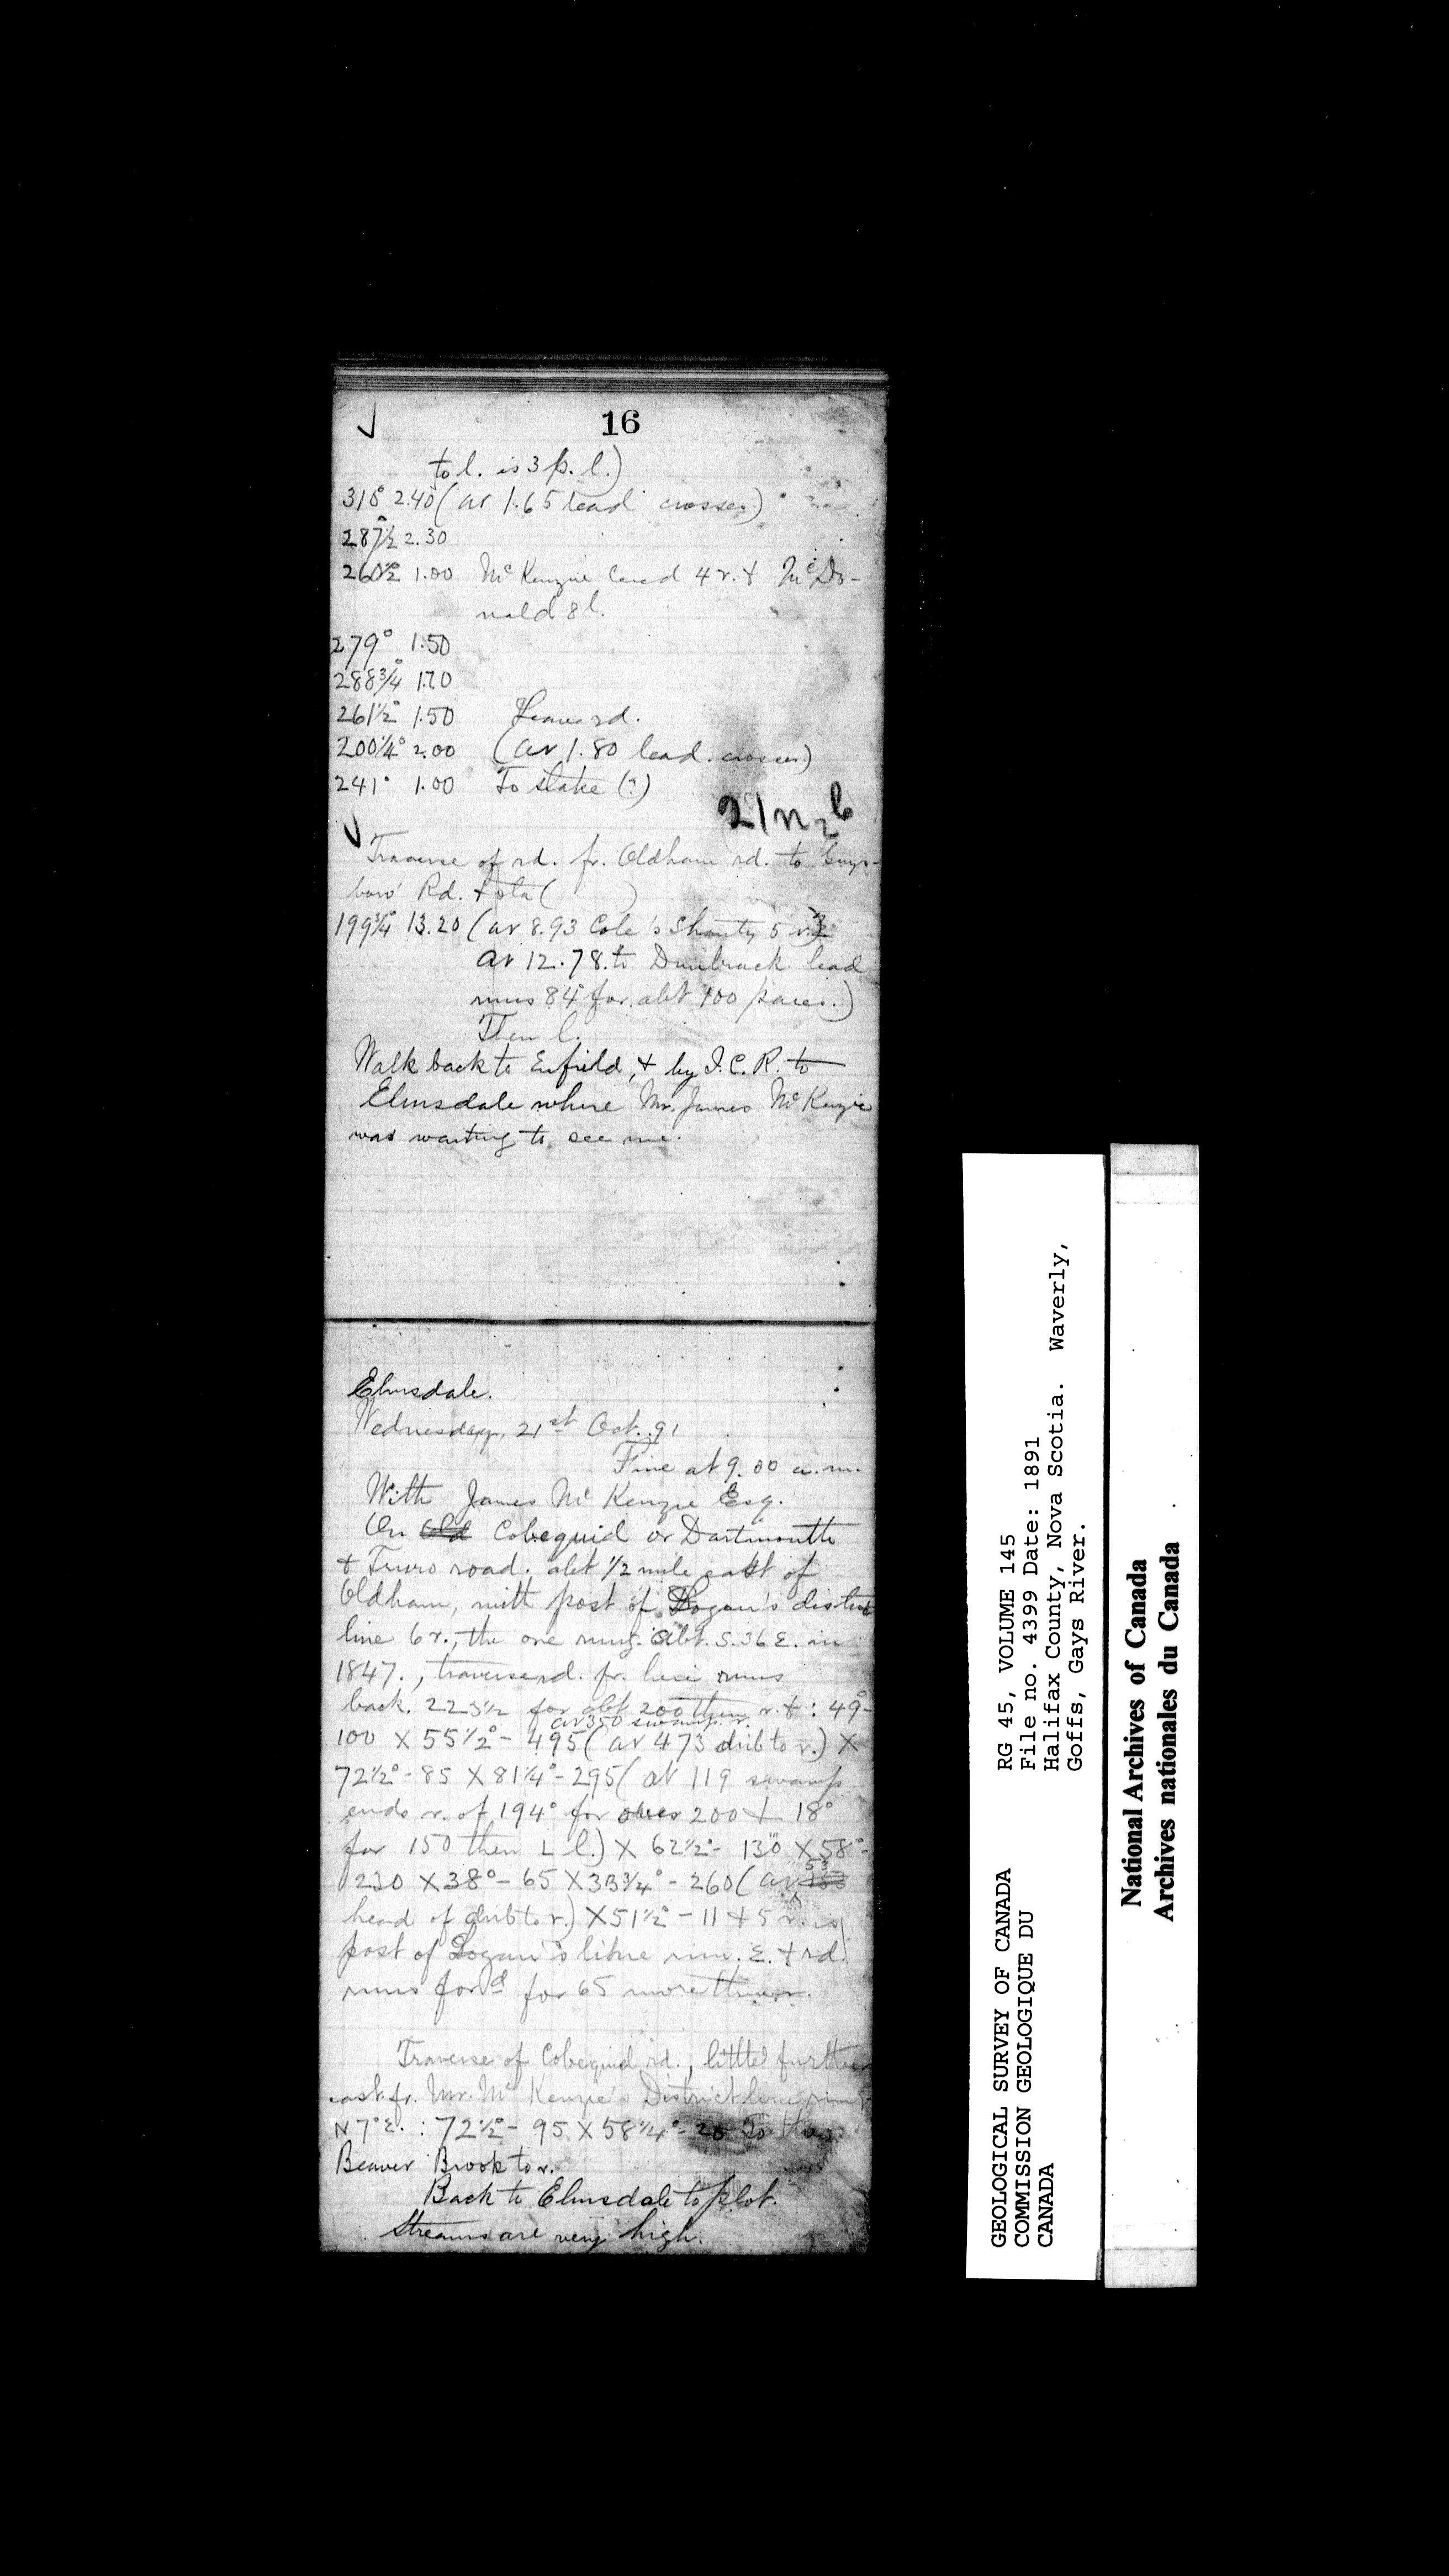 16
to l. is 3 p. l.)
318° 2.40 (at 1.65 lead crosses)
287½° 2.30
260½° 1.00 McKenzie lead 4 r. & McDo-
nald 8 l.
279° 1.50
288¾° 1.70
261½° 1.50 Leave rd.
200¼° 2.00 (at 1.80 lead crosses)
241° 1.00 To stake (?)
Traverse of rd. fr. Oldham rd. to Guys-
boro' Rd. & sta ( )
199¾° 13.20 (at 8.93 Cole's Shanty 5 r.
at 12.78 to Dunbrack lead
runs 84° for abt 100 paces.)
Then l.
Walk back to Enfield, & by I.C.R. to
Elmsdale where Mr. James McKenzie
was waiting to see me.
Elmsdale.
Wednesday, 21st Oct. 91
Fine at 9.00 a.m.
With James McKenzie Esq.
On Old Cobequid or Dartmouth
& Truro road, abt ½ mile east of
Oldham, with post of Logan's district
line 6 r., the one rung. abt. S. 36 E. in
1847., traverse rd. fr. here runs
back. 223½ for abt 200 then r. & : 49°-
at 350 swamp r.
100 X 55½° - 495 (at 473 drib to r.) X
72½° - 85 X 81¼° - 295 (at 119 swamp
ends r. of 194° for over 200 & 18°
for 150 then L l.) X 62½° - 130 X 58°-
230 X 38° - 65 X 33¾° - 260 (at 53
head of drib to r.) X 51½° - 11 & 5 r. is
post of Logan's line run. E. & rd.
runs ford for 65 more then r.
Traverse of Cobequid rd., little further
east fr. Mr. McKenzie's District line rung
N 7° E. : 72½° - 95 X 58¼° - 20 To
Beaver Brook to r.
Back to Elmsdale to plot.
Streams are very high.
GEOLOGICAL SURVEY OF CANADA
COMMISSION GEOLOGIQUE DU
CANADA
RG 45, VOLUME 145
File no. 4399 Date: 1891
Halifax County, Nova Scotia. Waverly,
Goffs, Gays River.
National Archives of Canada
Archives nationales du Canada